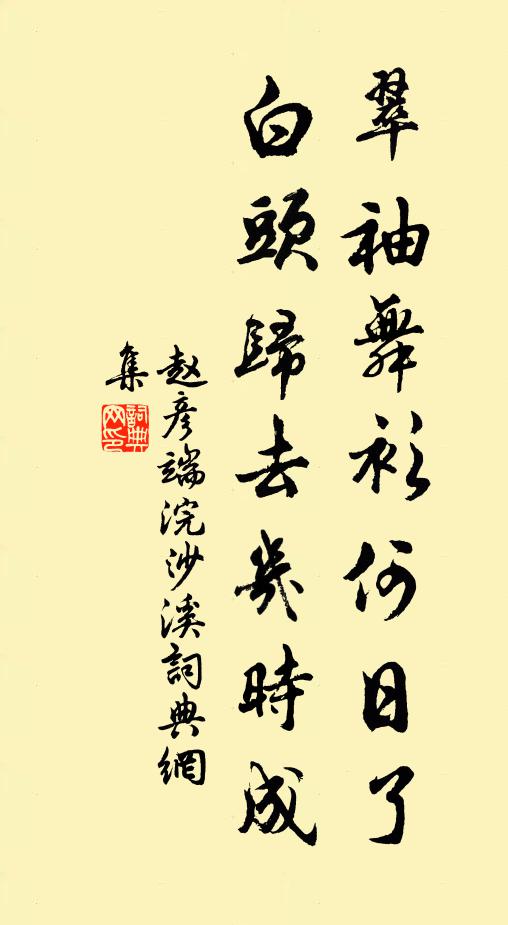 翠袖舞衫何日了
白頭歸去幾時成
赵彦端浣沙溪詞典網
集
詞典
网印